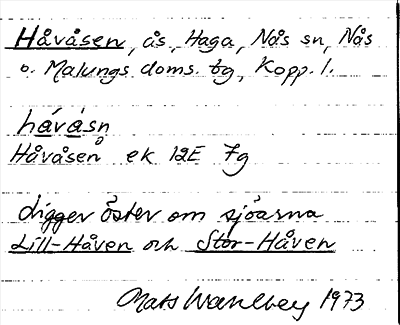 Håvåsen, ås, Haga, Nås sn, Nås
o. Malungs doms. tg, Kopp. l.
håvåsn
Håvåsen ek 12E 7g
Ligger öster om sjöarna
Lill-Håven och Stor-Håven
Mats Wahlberg 1973